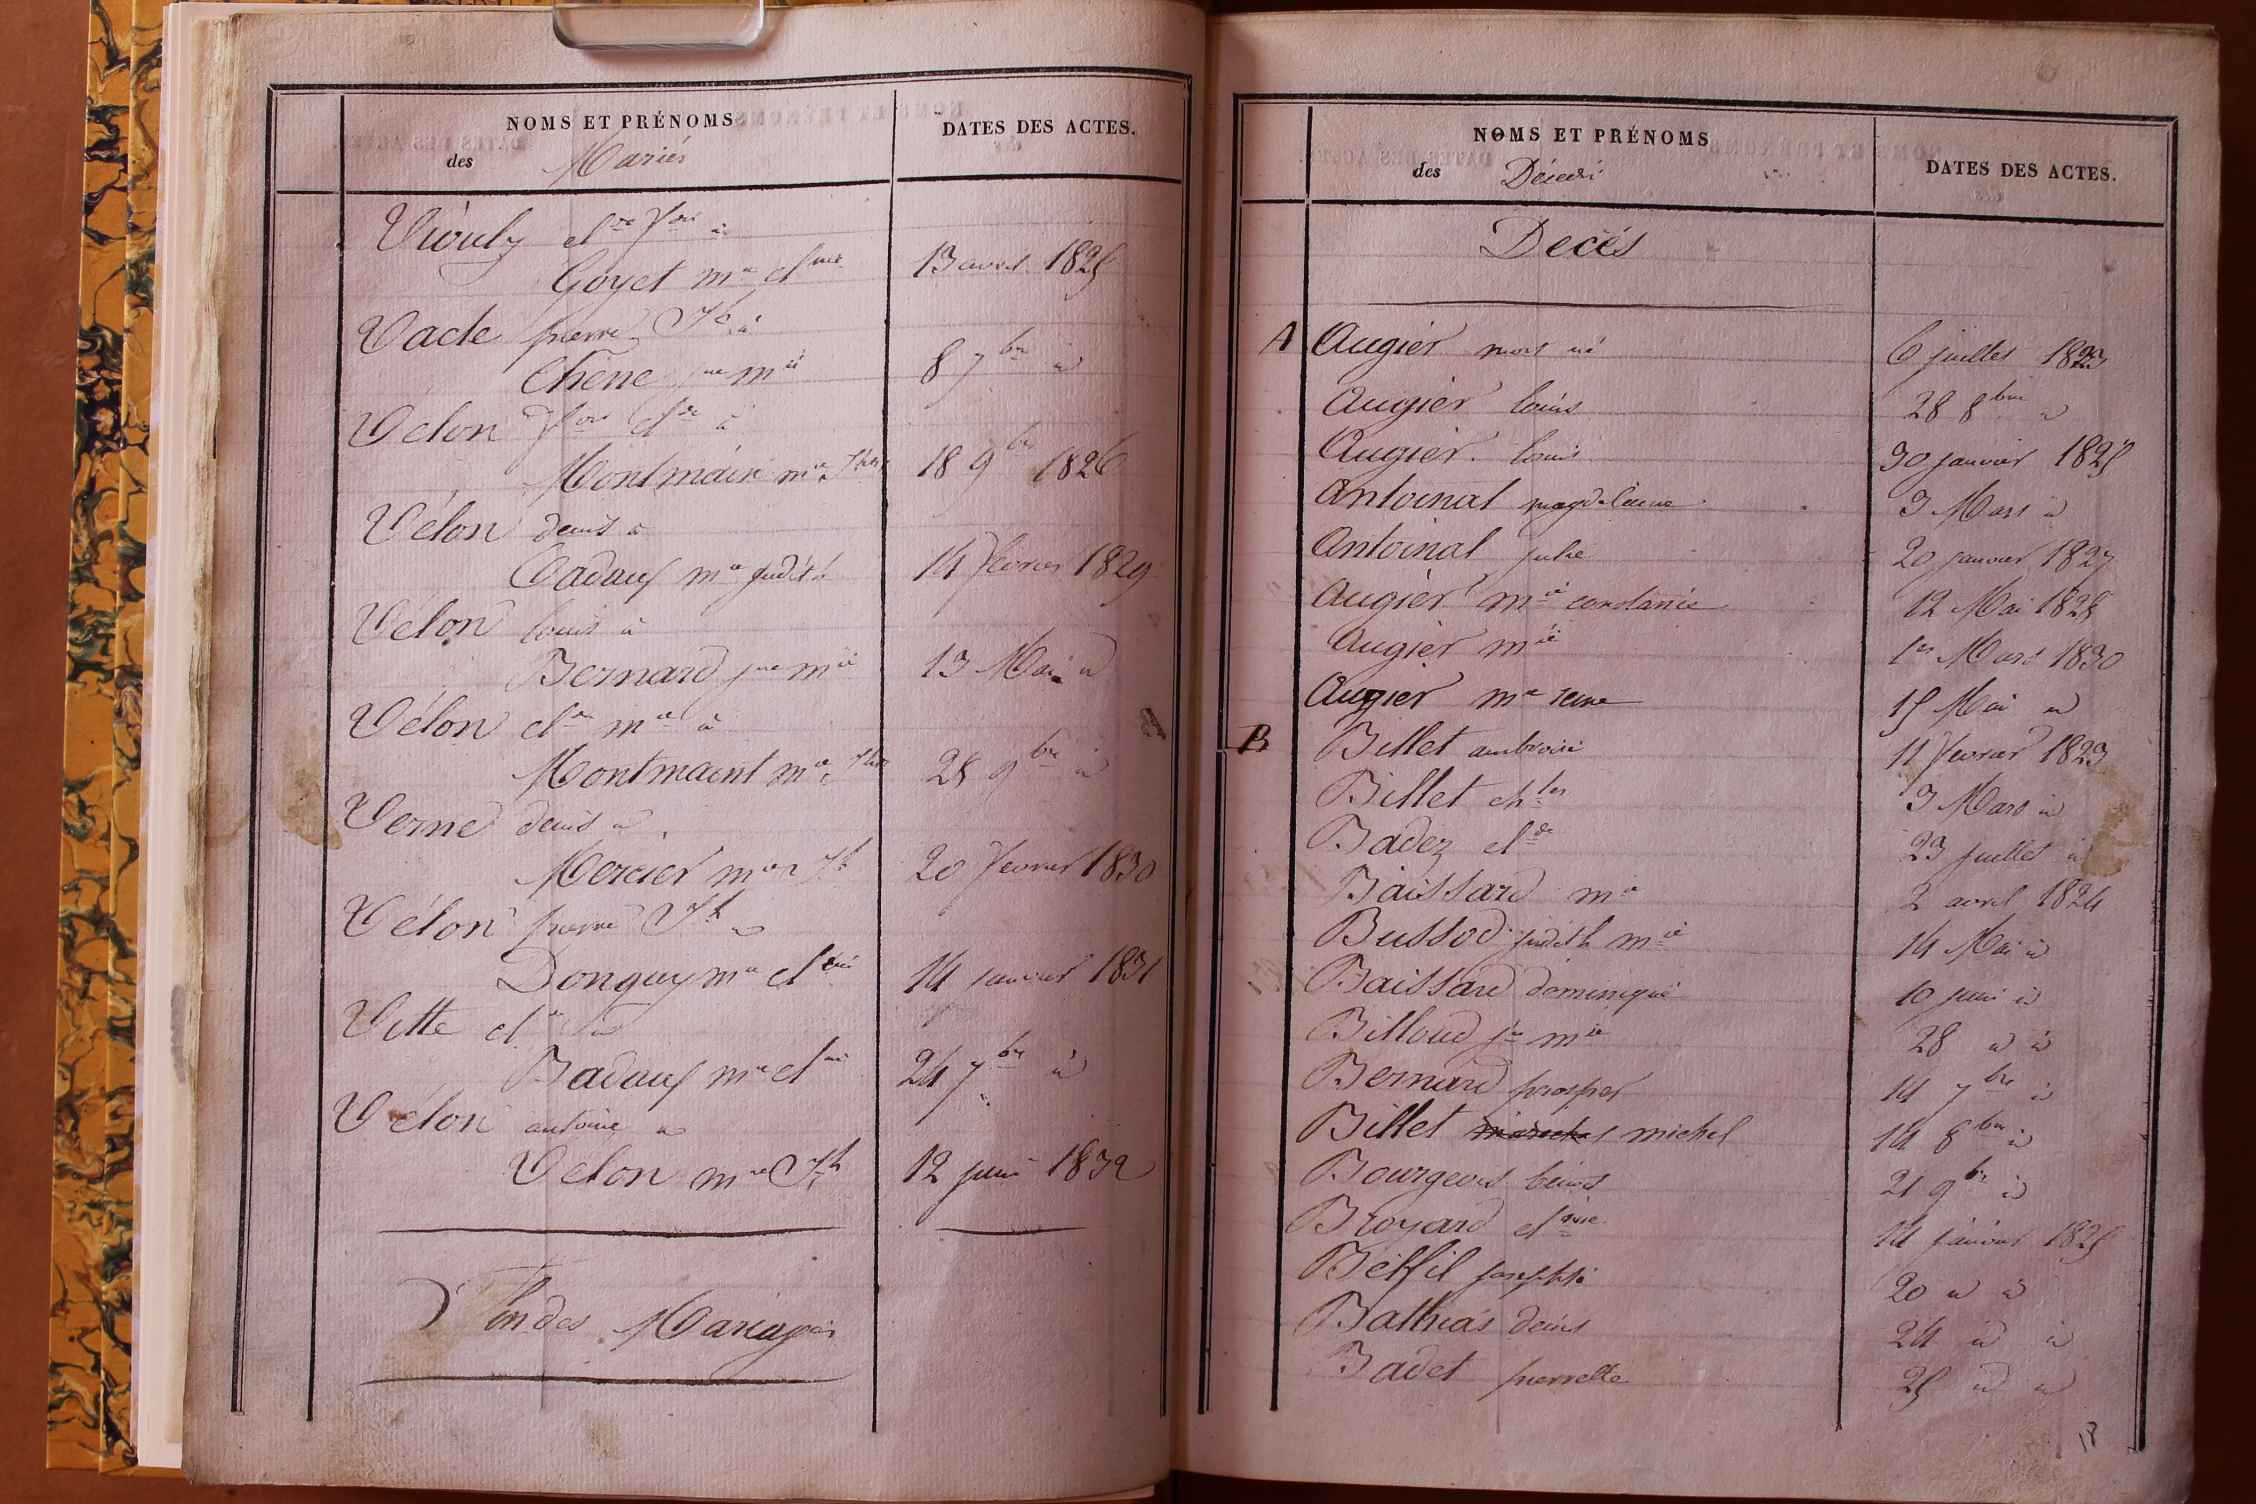 NOMS ET PRÉNOMS
des Mariés
DATES DES ACTES.
Viouly cl^de f^ois à
Goyet m^ie cl^ine 13 avril 1825
Vacle pierre J^h à
Chêne j^ne m^ie 8 7^bre id
Vélon f^ois cl^de à
Montmain m^ie Thse 18 9^bre 1826
Vélon denis à
Cadauf m^ie judith 14 fevrier 1829
Vélon louis à
Bernard j^ne m^ie 13 Mai id
Vélon cl^de m^ie à
Montmaint m^ie Thse 25 9^bre id
Verne denis à
Mercier m^ie J^h 20 fevrier 1830
Vélon pierre J^h à
Donguy m^ie cl^ine 14 janvier 1831
Vitte cl^de à
Badauf m^ie cl^ine 24 7^bre id
Vélon antoine à
Velon m^ie J^h 12 juin 1832
Fin des Mariages
NOMS ET PRÉNOMS
des Décédés
DATES DES ACTES.
Decès
A Augier mort né 6 juillet 1823
Augier louis 28 8^bre id
Augier louis 30 janvier 1825
Antoinat magdelaine 3 Mars id
Antoinat julie 20 janvier 1827
Augier m^ie constance 12 Mai 1828
Augier m^ie 1^er Mars 1830
Augier m^ie reine 15 Mai id
B Billet ambroise 11 fevrier 1823
Billet ch^les 3 Mars id
Badez cl^de 23 juillet id
Baissard m^ie 2 avril 1824
Bussod judith m^ie 14 Mai id
Baissard dominique 10 juin id
Billoud j^n m^ie 28 id id
Bernard prosper 14 7^bre id
Billet michel 14 8^bre id
Bourgeois denis 21 9^bre id
Broyard cl^ine 14 janvier 1825
Belfil josephte 20 id id
Bathias denis 24 id id
Badet pierrette 25 id id